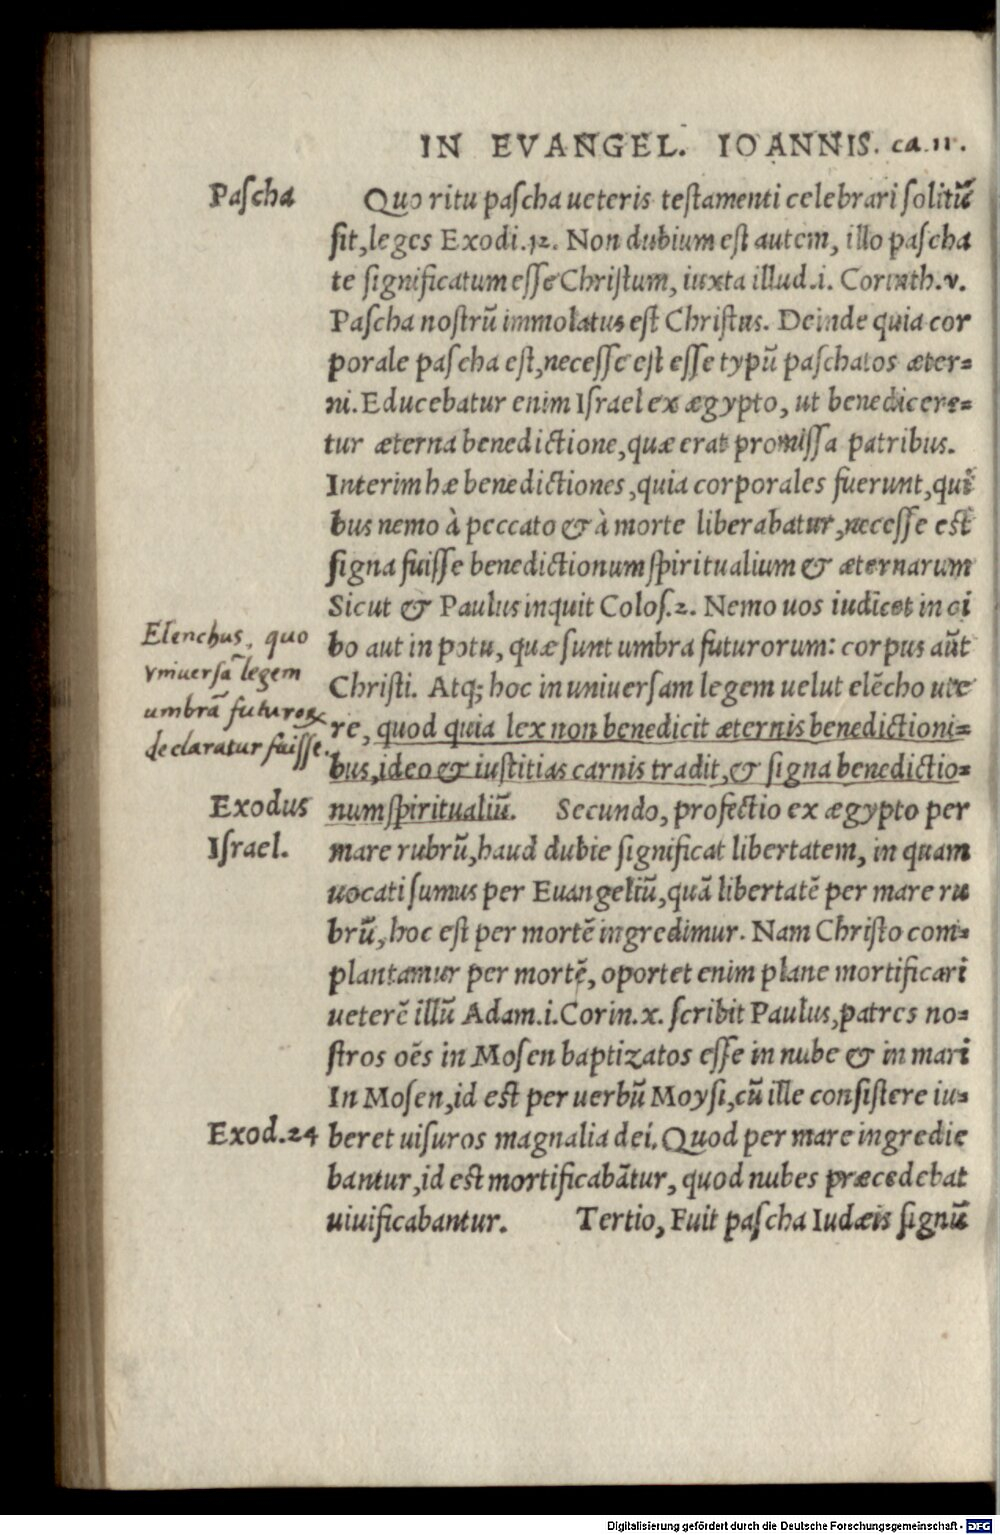 IN EVANGEL. IOANNIS. ca.11.
Paſcha
Quo ritu paſcha ueteris teſtamenti celebrari ſolitũ
ſit,leges Exodi.12. Non dubium eſt autem, illo paſcha
te ſignificatum eſſe Chriſtum, iuxta illud.i. Corinth.v.
Paſcha noſtrũ immolatus eſt Chriſtus. Deinde quia cor
porale paſcha eſt,neceſſe eſt eſſe typũ paſchatos æter=
ni.Educebatur enim Iſrael ex ægypto, ut benedicere=
tur æterna benedictione,quæ erat promiſſa patribus.
Interim hæ benedictiones,quia corporales fuerunt,qui
bus nemo à peccato & à morte liberabatur,neceſſe eſt
ſigna fuiſſe benedictionum ſpiritualium & æternarum
Sicut & Paulus inquit Coloſ.2. Nemo uos iudicet in ci
bo aut in potu, quæ ſunt umbra futurorum: corpus aũt
Chriſti. Atq; hoc in uniuerſam legem uelut elẽcho ute
re, quod quia lex non benedicit æternis benedictioni=
bus,ideo & iuſtitias carnis tradit,& ſigna benedictio=
num ſpiritualiũ. Secundo, profectio ex ægypto per
mare rubrũ,haud dubie ſignificat libertatem, in quam
uocati ſumus per Euangeliũ,quã libertatẽ per mare ru
brũ,hoc eſt per mortẽ ingredimur. Nam Chriſto com=
plantamur per mortẽ, oportet enim plane mortificari
ueterẽ illũ Adam.i.Corin.x. ſcribit Paulus,patres no=
ſtros oẽs in Moſen baptizatos eſſe in nube & in mari
In Moſen,id eſt per uerbũ Moyſi,cũ ille conſiſtere iu=
beret uiſuros magnalia dei. Quod per mare ingredie
bantur,id eſt mortificabãtur, quod nubes præcedebat
uiuificabantur. Tertio, Fuit paſcha Iudæis ſignũ
Elenchus, quo
vniuerſã legem
umbrã futuroꝝ
declaratur fuiſſe.
Exodus
Iſrael.
Exod.24
Digitalisierung gefördert durch die Deutsche Forschungsgemeinschaft - DFG